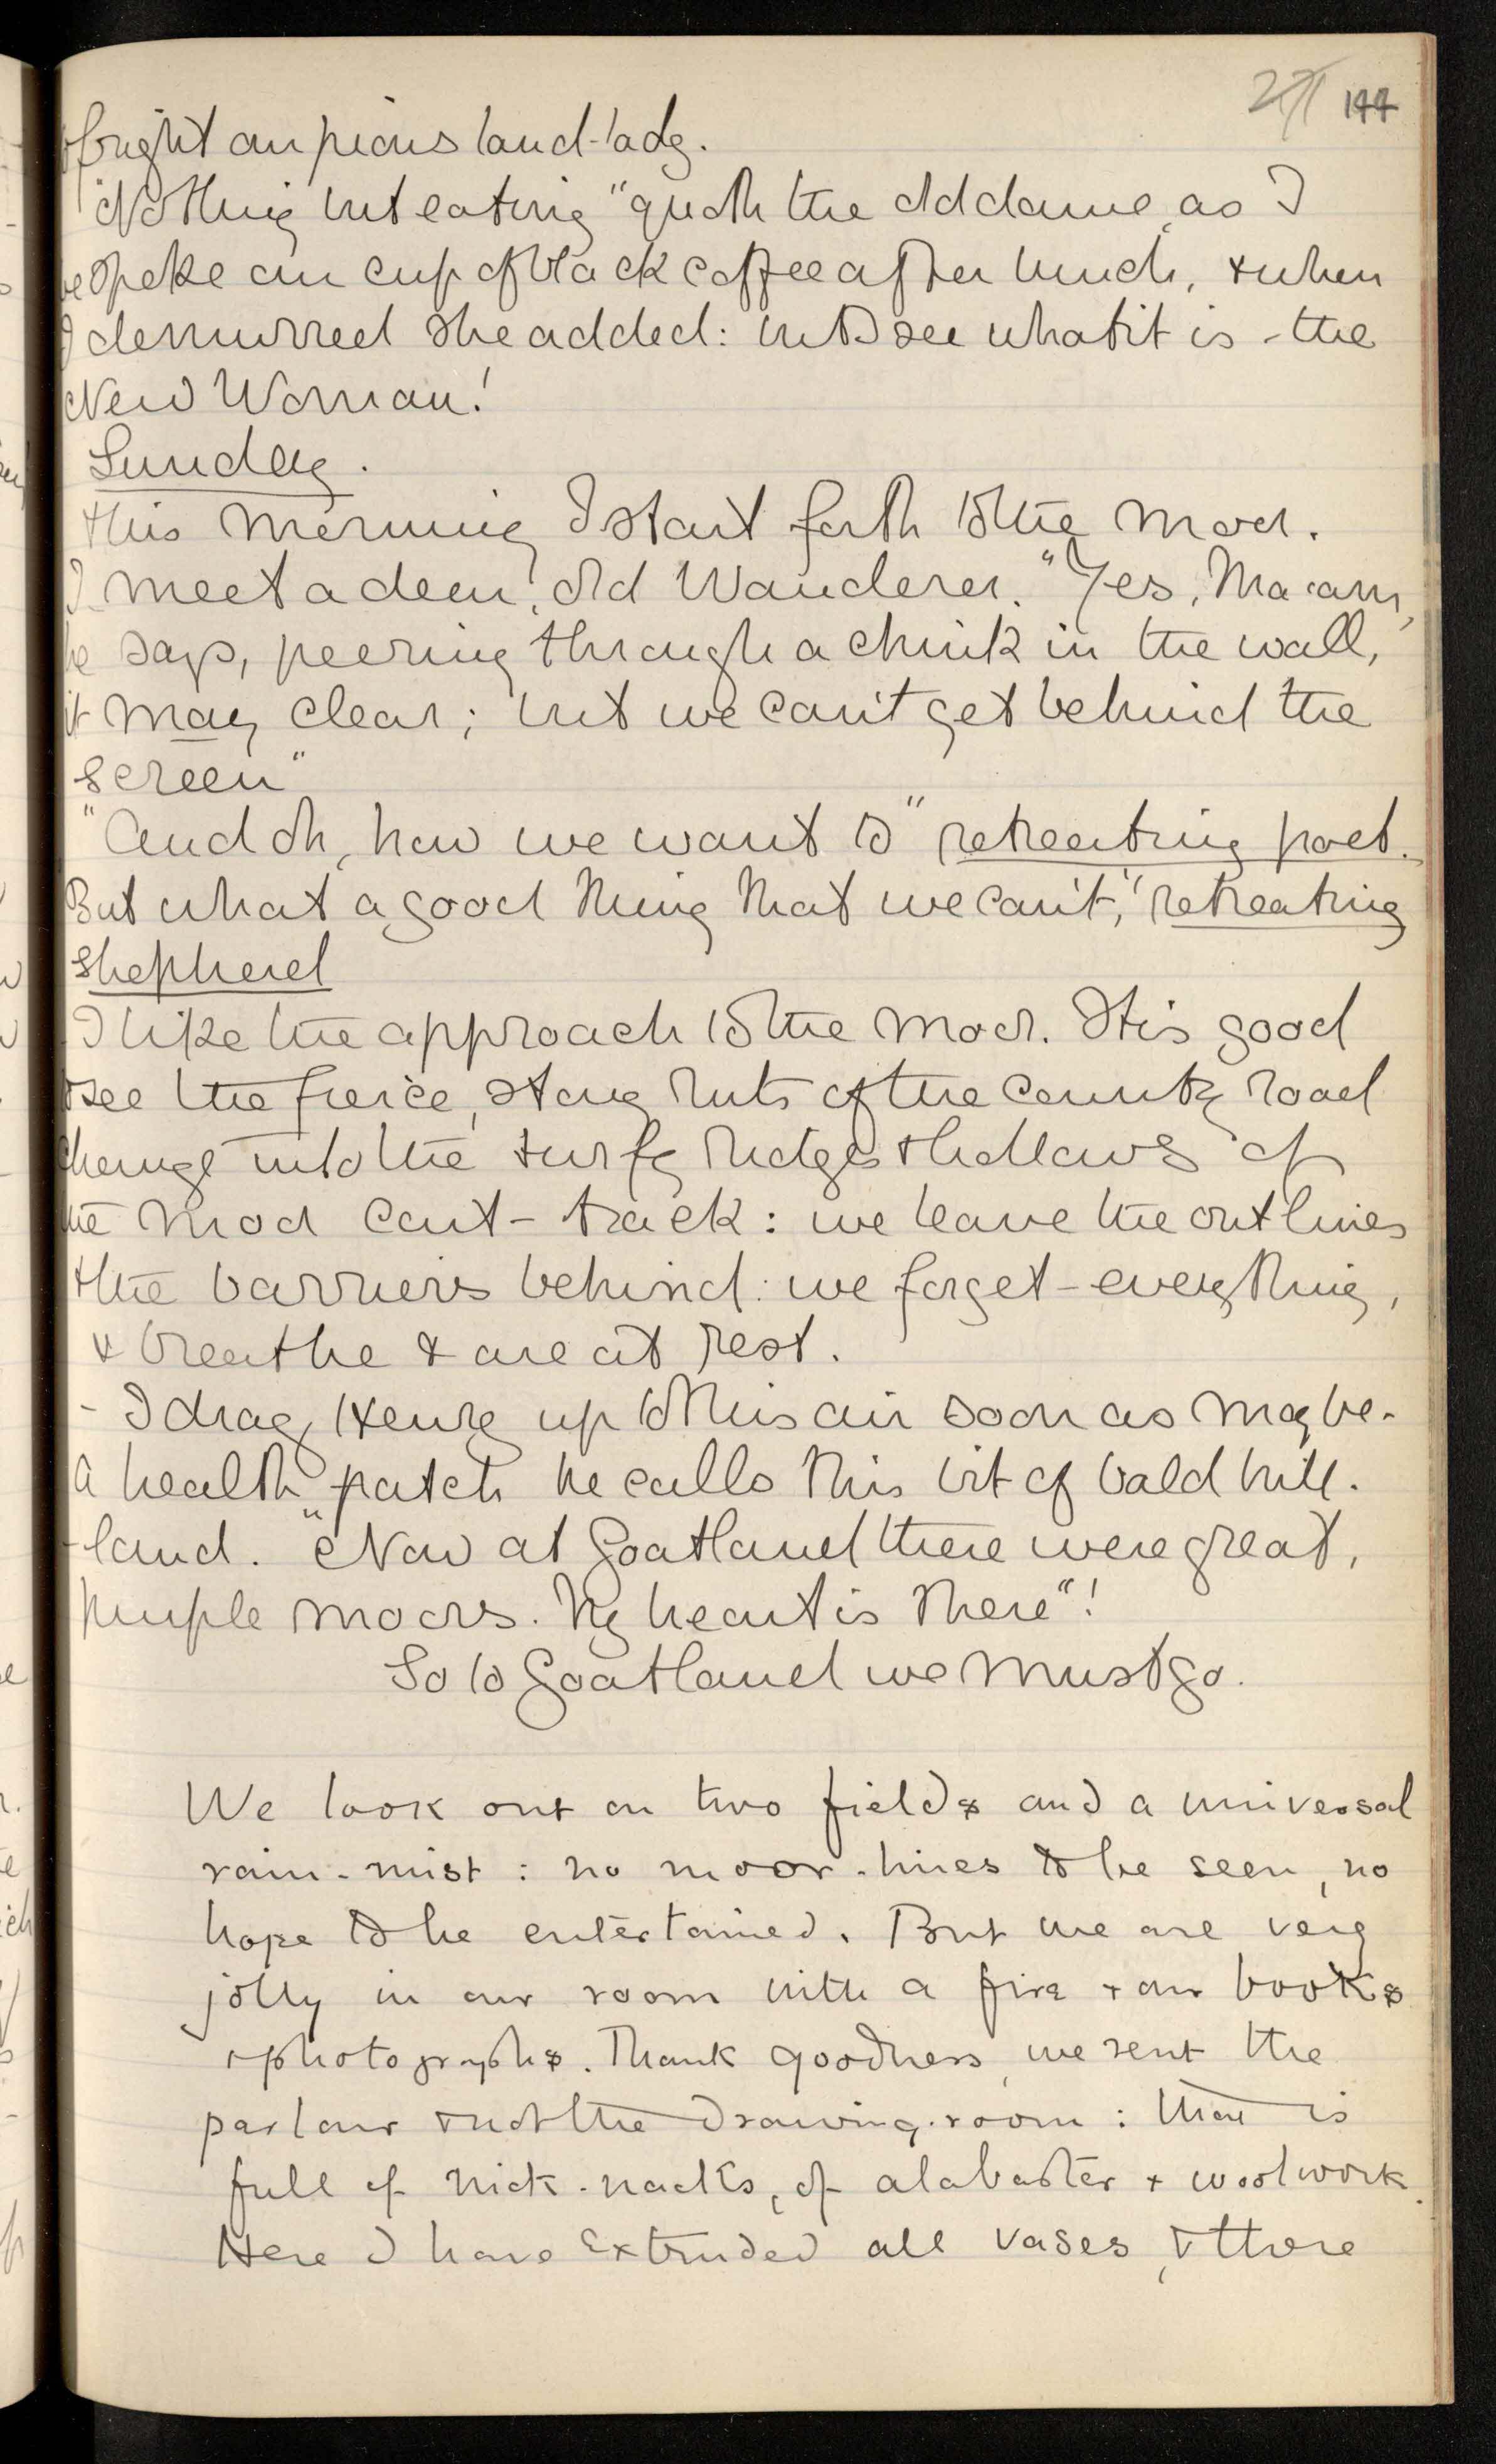 144
fright our pious land-lady.
"Nothing but eating" quoth the old dame, as I
bespoke our cup of black coffee after lunch, & when
I demurred she added: but I see what it is - the
New Woman!
Sunday.
this morning I start forth to the moor.
I meet a dear, old Wanderer. "Yes, Ma'am,
he says, peering through a chink in the wall,
it may clear; but we can't get behind the
screen"
"And oh, how we want to" retreating poet.
But what a good thing that we can't," retreating
shepherd
I like the approach to the moor. It is good
to see the fierce, stony ruts of the country road
change into the turfy ridges & hollows of
the moor cart-track: we leave the outlines
& the barriers behind: we forget - everything,
& breathe & are at rest.
- I drag Henry up to this air soon as may be -
a health patch he calls this bit of bald hill-
-land. "Now at Goathland there were great,
purple moors. My heart is there"!
So to Goathland we must go.
We look out on two fields and a universal
rain-mist: no moor-lines to be seen, no
hope to be entertained. But we are very
jolly in our room with a fire & our books
& photographs. Thank goodness, we rent the
parlour & not the drawing-room: that is
full of nick-nacks, of alabaster & woolwork.
Here I have extruded all vases, & there